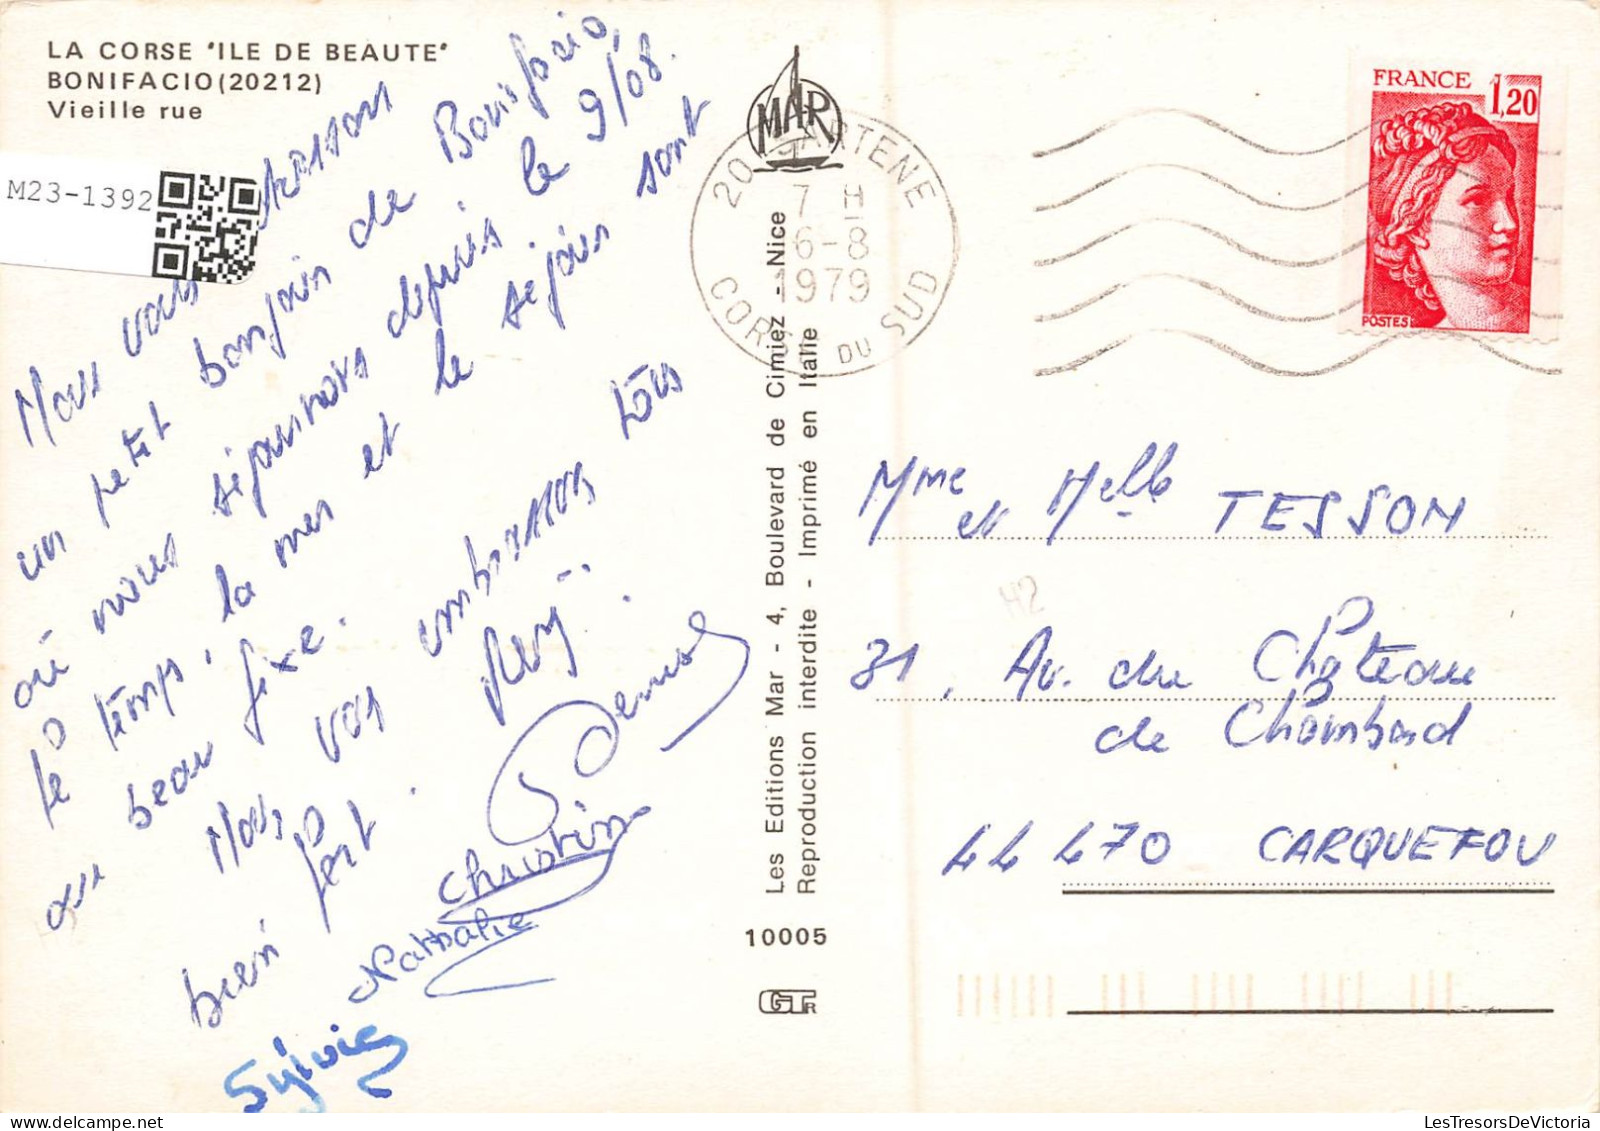 LA CORSE "ILE DE BEAUTE"
BONIFACIO (20212)
Vieille rue
M23-1392
Nous vous adressons
un petit bonjour de Bonifacio,
où nous séjournons depuis le 9/08.
le temps, la mer et le séjour sont
au beau fixe.
Nous vous embrassons tous
bien fort.
Rémy
Christine
Nathalie
Sylvie
MAR
Les Editions Mar - 4, Boulevard de Cimiez - Nice
Reproduction interdite - Imprimé en Italie
10005
GTR
20 SARTENE
7 H
6-8
1979
CORSE DU SUD
FRANCE
1,20
POSTES
Mme et Melle TESSON
31, Av. du Château
de Chambord
44 470 CARQUEFOU
H2
LesTresorsDeVictoria.com